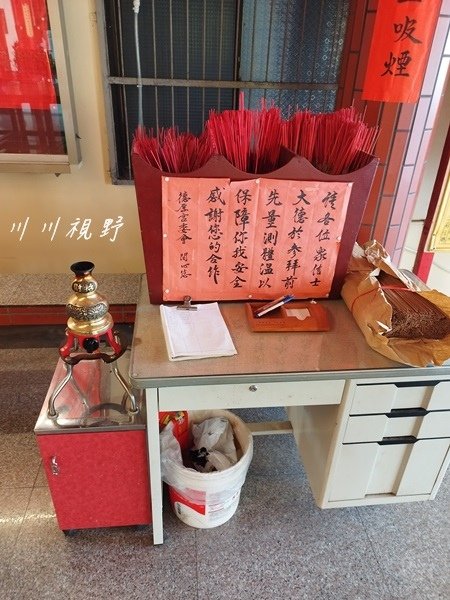 吸煙
各位眾信士
大德於參拜前
先量測體溫以
保障你我安全
感謝您的合作
宮委會 關心您
川川視野